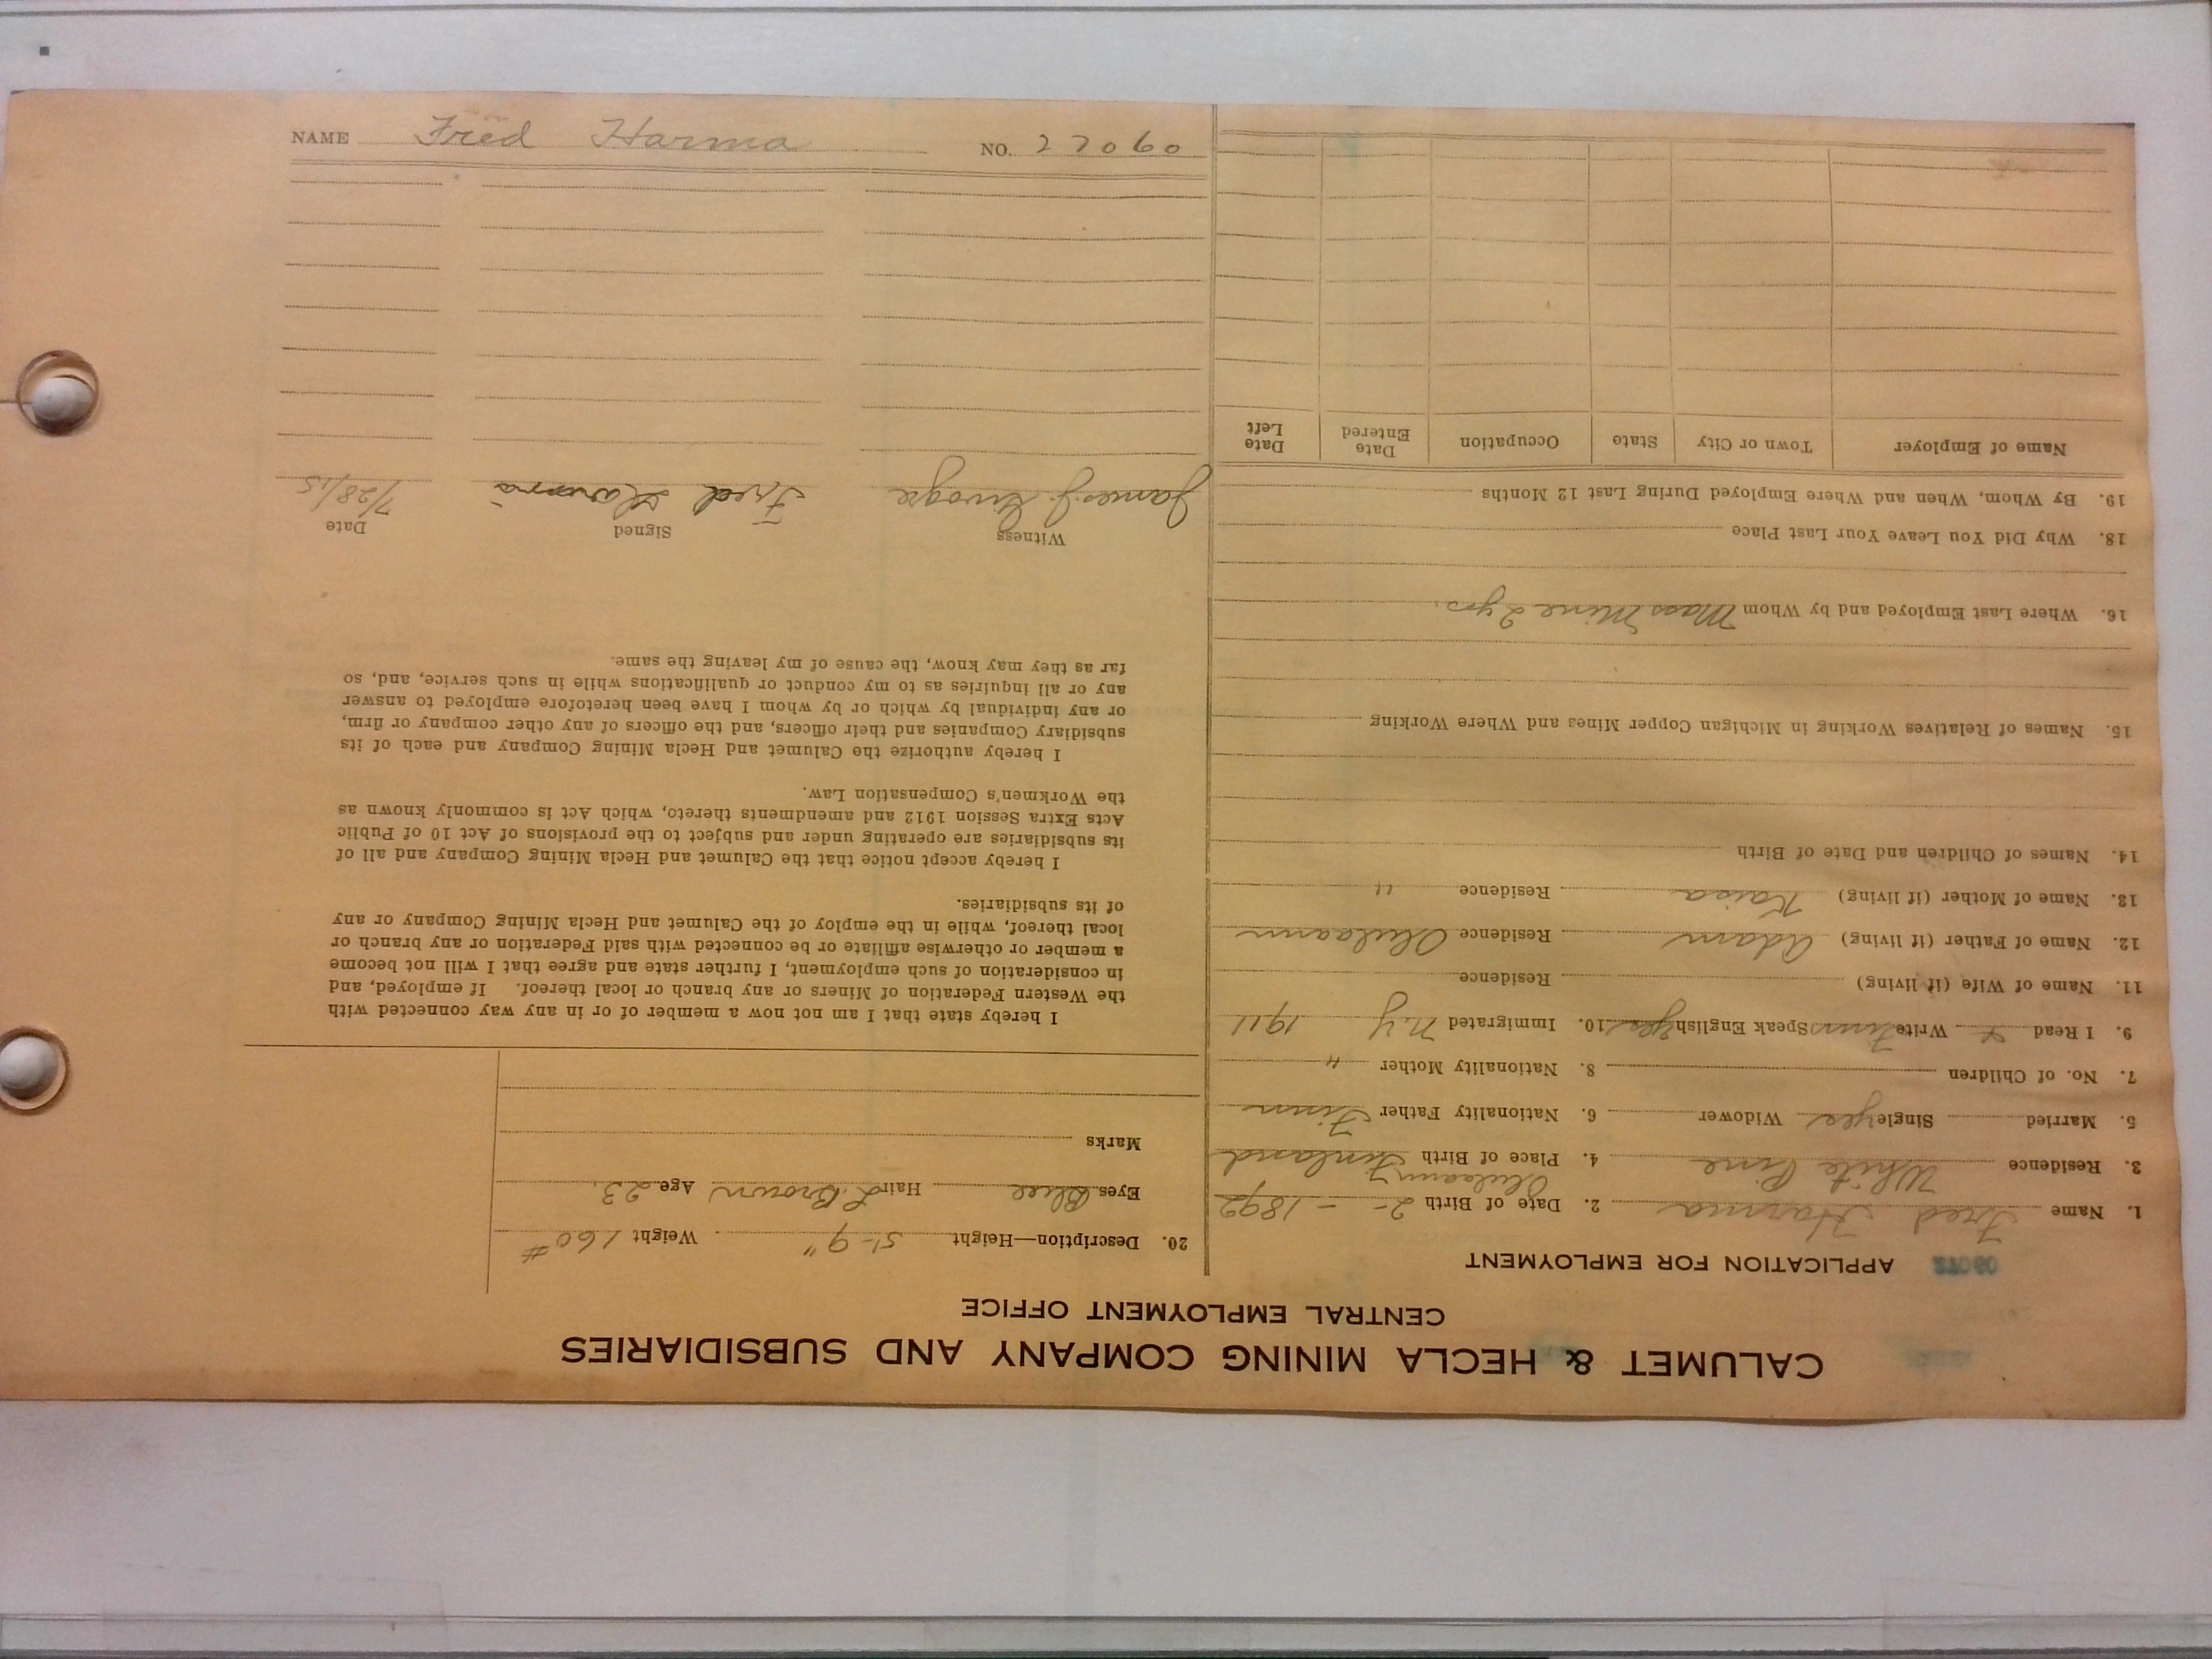 CALUMET & HECLA MINING COMPANY AND SUBSIDIARIES
CENTRAL EMPLOYMENT OFFICE
APPLICATION FOR EMPLOYMENT
1. Name Fred Harma 2. Date of Birth 2 - - 1892
3. Residence White Pine 4. Place of Birth Finland
5. Married Single yes Widower 6. Nationality Father Finn
7. No. of Children 8. Nationality Mother "
9. I Read & Write Finnish Speak English yes 10. Immigrated N.Y 1911
11. Name of Wife (if living) Residence
12. Name of Father (if living) Adam Residence
13. Name of Mother (if living) Kaisa Residence "
14. Names of Children and Date of Birth
15. Names of Relatives Working in Michigan Copper Mines and Where Working
16. Where Last Employed and by Whom Mass Mine 2 yrs.
18. Why Did You Leave Your Last Place
19. By Whom, When and Where Employed During Last 12 Months
Name of Employer Town or City State Occupation Date Entered Date Left
20. Description—Height 5'-9" Weight 160 #
Eyes Blue Hair L. Brown Age 23.
Marks
I hereby state that I am not now a member of or in any way connected with
the Western Federation of Miners or any branch or local thereof. If employed, and
in consideration of such employment, I further state and agree that I will not become
a member or otherwise affiliate or be connected with said Federation or any branch or
local thereof, while in the employ of the Calumet and Hecla Mining Company or any
of its subsidiaries.
I hereby accept notice that the Calumet and Hecla Mining Company and all of
its subsidiaries are operating under and subject to the provisions of Act 10 of Public
Acts Extra Session 1912 and amendments thereto, which Act is commonly known as
the Workmen's Compensation Law.
I hereby authorize the Calumet and Hecla Mining Company and each of its
subsidiary Companies and their officers, and the officers of any other company or firm,
or any individual by which or by whom I have been heretofore employed to answer
any or all inquiries as to my conduct or qualifications while in such service, and, so
far as they may know, the cause of my leaving the same.
Witness Signed Date
James J. Fred Harma 7/28/15
NAME Fred Harma NO. 27060